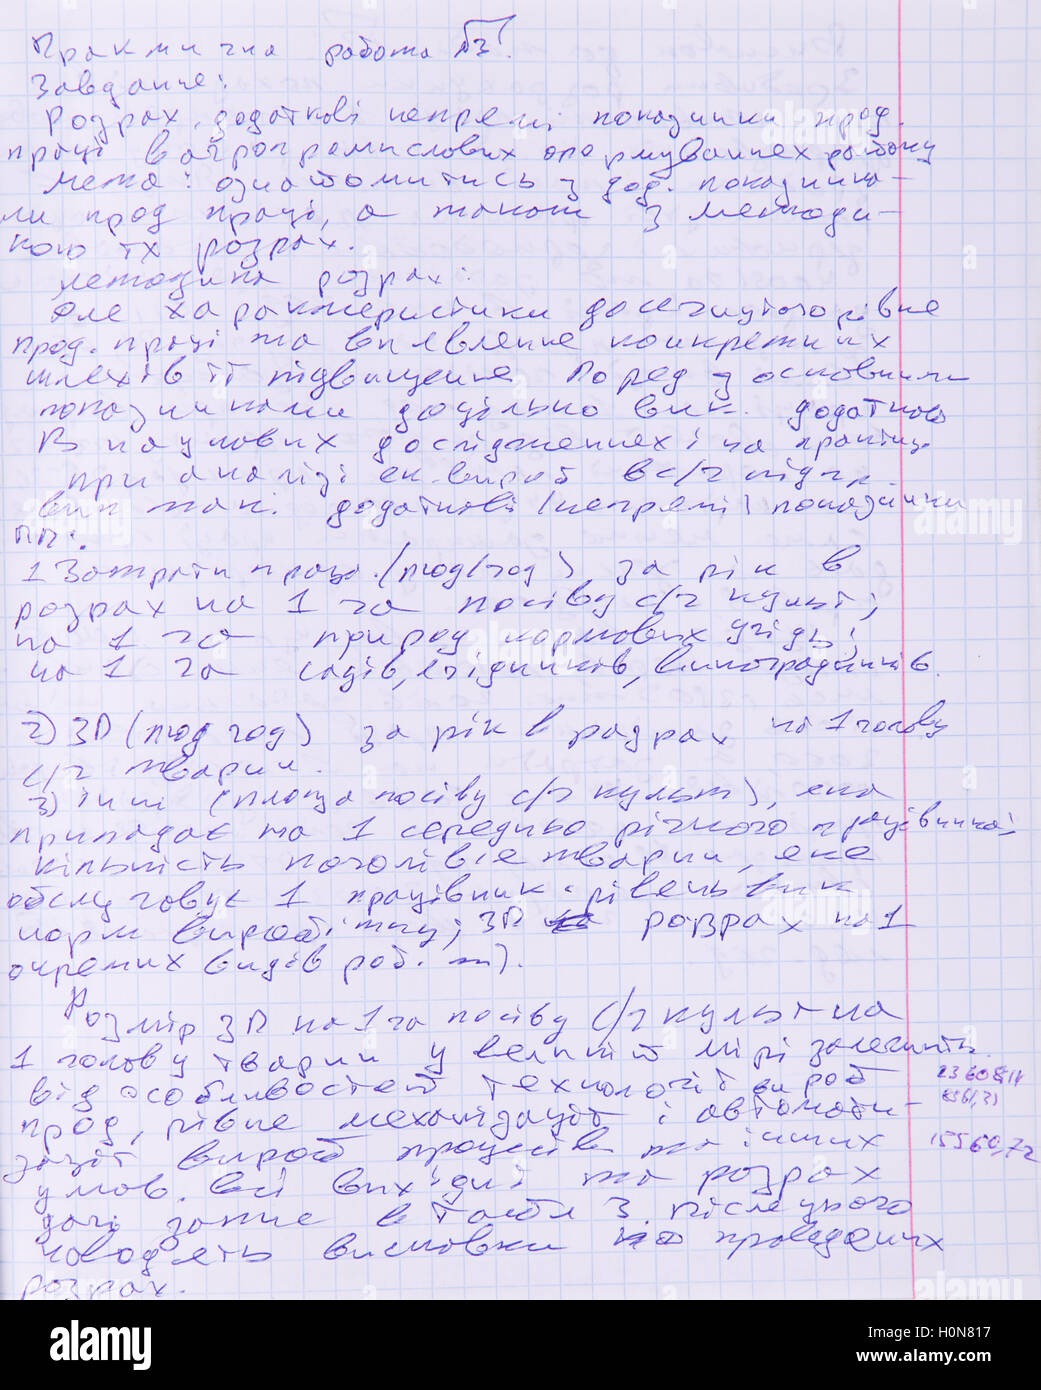 Практична робота №3.
Завдання:
Розрах. додаткові непрямі показники прод.
праці в агропромислових формуваннях району
Мета: ознайомитись з дод. показника-
ми прод праці, а також з методи-
кою їх розрах.
Методика розрах:
Для характеристики досягнутого рівня
прод. праці та виявлення конкретних
шляхів її підвищення Поряд з основними
показниками доцільно вик. додаткові
В наукових дослідженнях і на практиці
при аналізі ек. вироб в с/г підпр.
вик так. додаткові /непрямі/ показники
ПП:
1 Затрати праці /люд/год) за рік в
розрах на 1 га посіву с/г культ;
на 1 га природ кормових угідь;
на 1 га садів, ягідників, виноградників.
2) ЗП (люд год) за рік в розрах на 1 голову
с/г тварин.
3) інші (площа посіву с/г культ), яка
припадає на 1 середньо річного працівника;
кількість поголівя тварин, яке
обслуговує 1 працівник; рівень вик
норм виробітку; ЗП розрах на 1
окремих видів роб. т).
Розмір ЗП на 1 га посіву с/г культ на
1 голову тварин у великій мірі залежить
від особливостей технології вироб
прод, рівня механізації і автомати-
зації вироб процесів та інших
умов. Всі вихідні та розрах
дані запис в табл 3. після цього
наводять висновки по проведених
розрах.
alamy
15560,72
alamy
H0N817
www.alamy.com